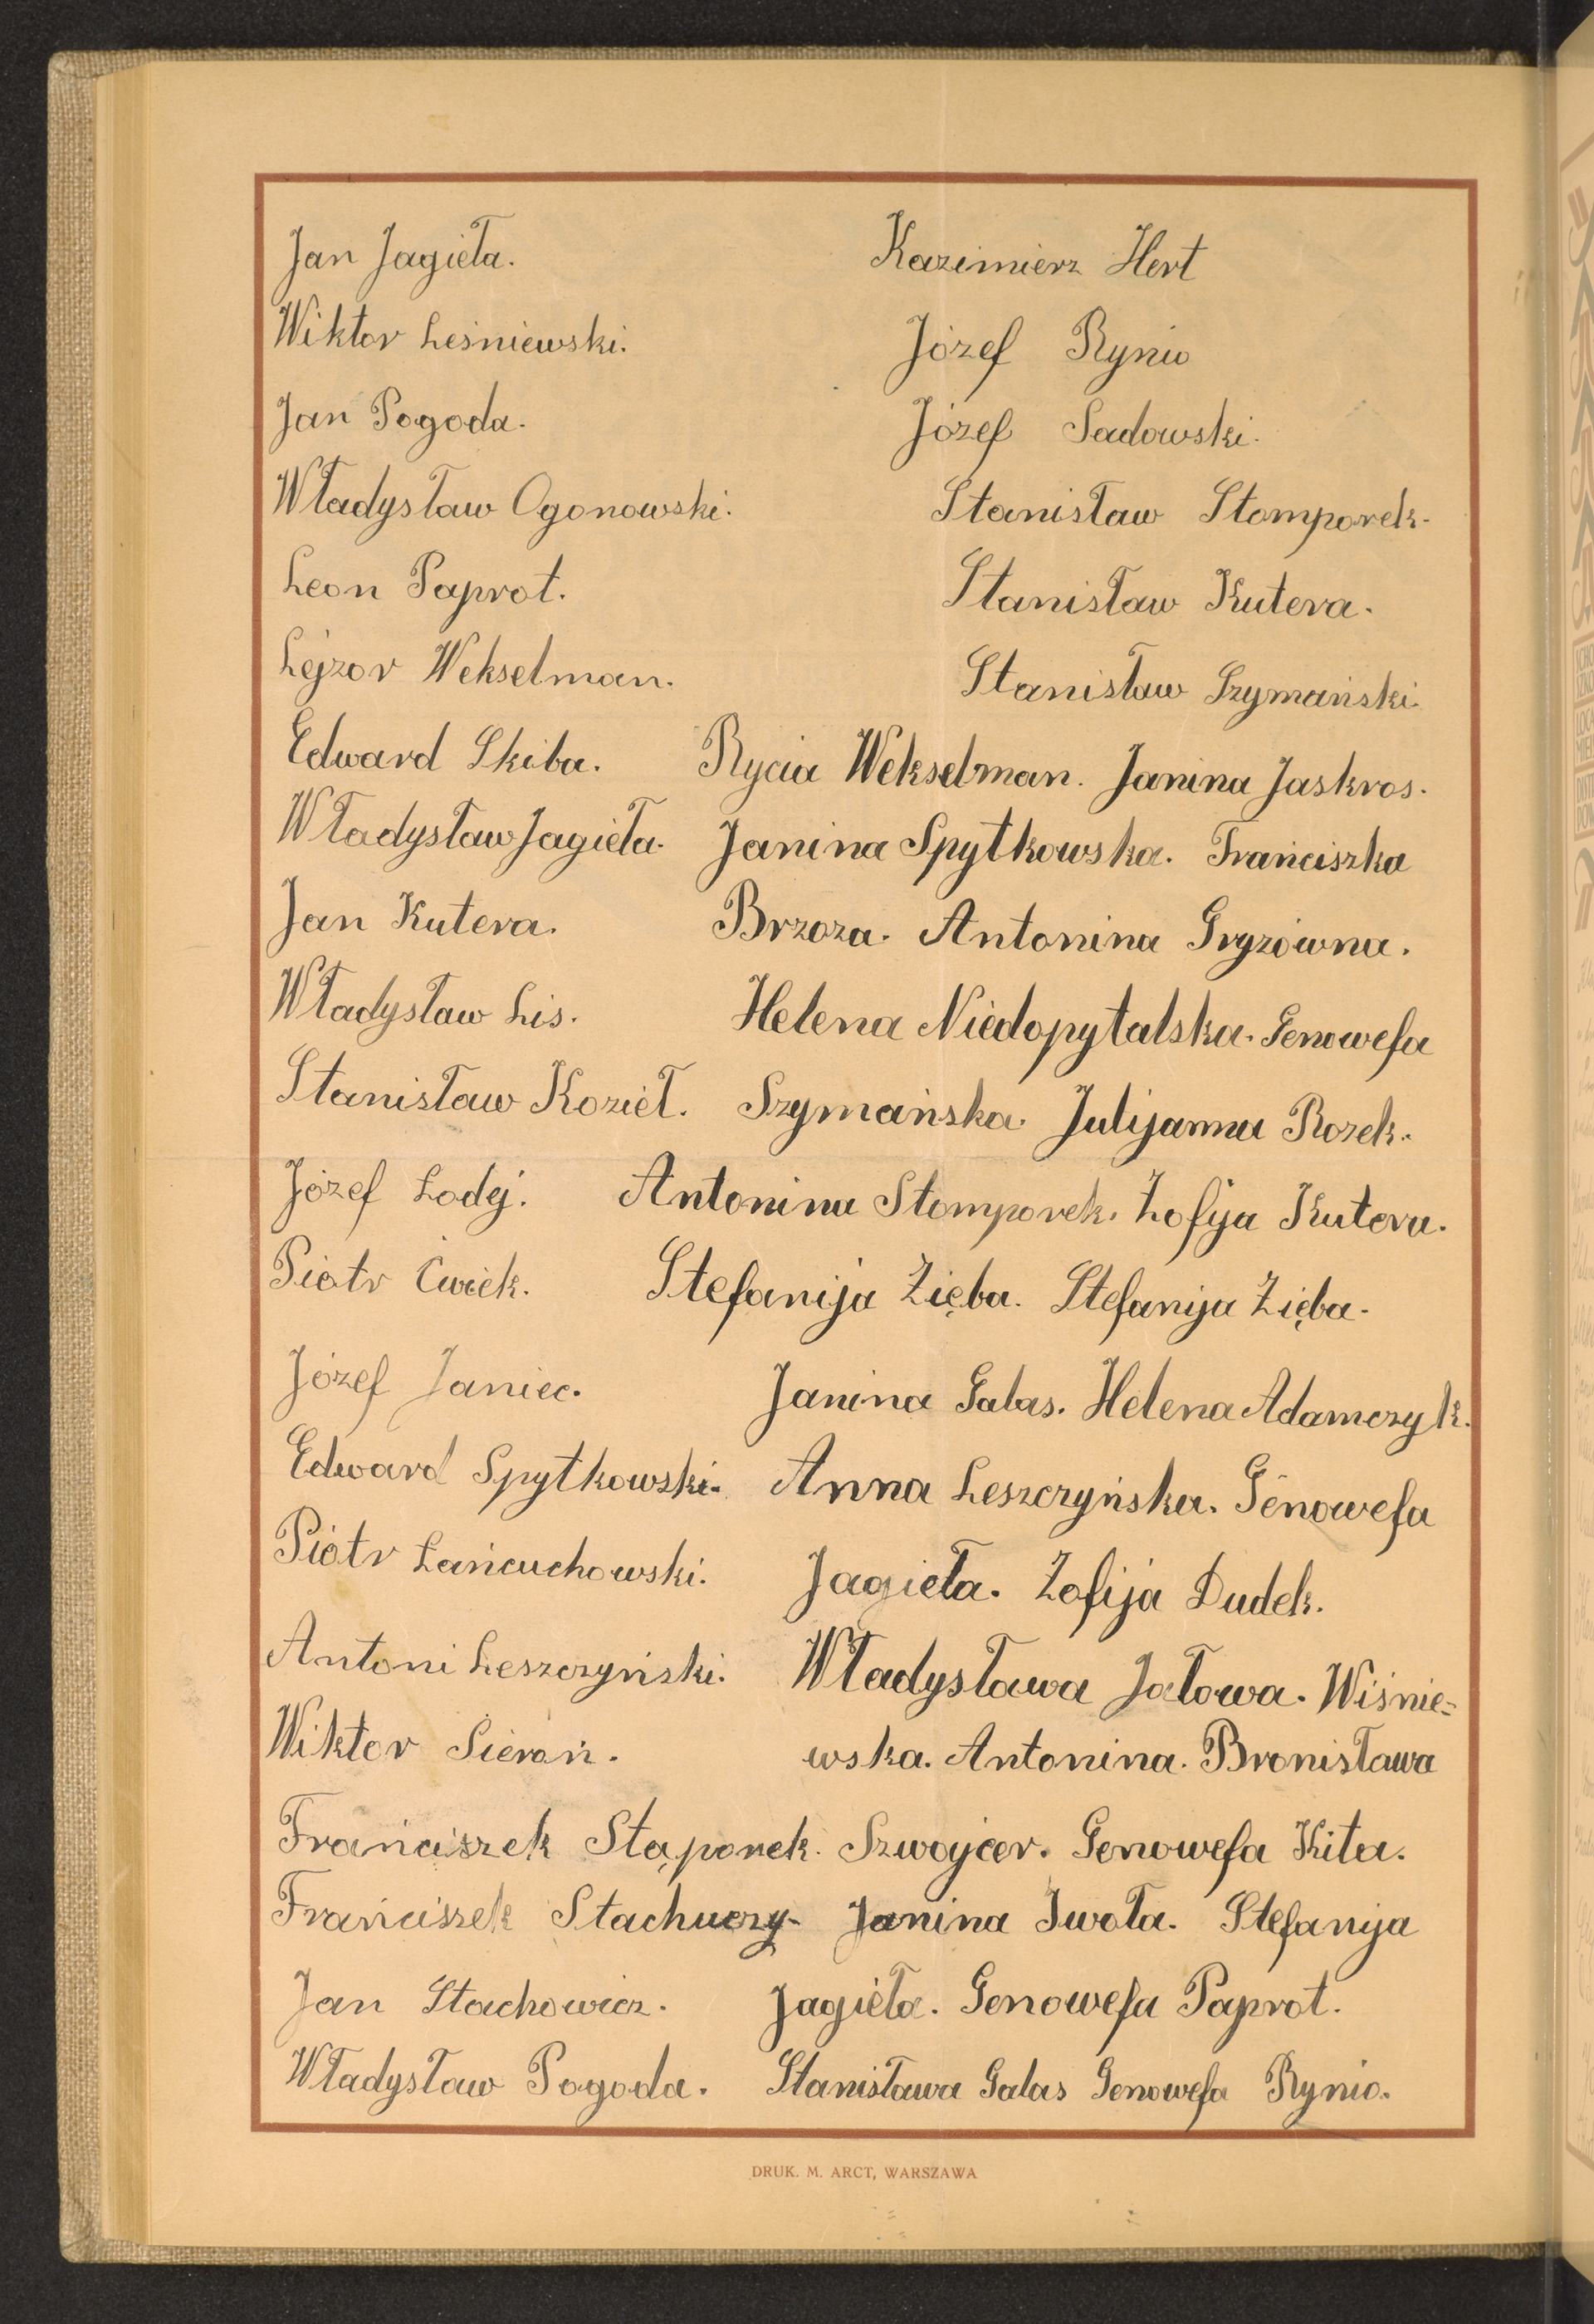 Jan Jagieła.
Wiktor Leśniewski.
Jan Pogoda.
Władysław Ogonowski.
Leon Paprot.
Lejzor Wekselman.
Edward Skiba.
Władysław Jagieła.
Jan Kutera.
Władysław Lis.
Stanisław Kozieł.
Józef Lodej.
Piotr Ćwiek.
Józef Janiec.
Edward Spytkowski.
Piotr Łańcuchowski.
Antoni Leszczyński.
Wiktor Sierań.
Franciszek Stąporek.
Franciszek Stachuczy.
Jan Stachowicz.
Władysław Pogoda.
Kazimierz Hert
Józef Rynio
Józef Sadowski.
Stanisław Stomporek.
Stanisław Kutera.
Stanisław Szymański.
Rycia Wekselman. Janina Jaskros.
Janina Spytkowska. Franciszka
Brzoza. Antonina Gryzówna.
Helena Niedopytalska. Genowefa
Szymańska. Julijanna Rozek.
Antonina Stomporek. Zofija Kutera.
Stefanija Zięba. Stefanija Zięba.
Janina Galas. Helena Adamczyk.
Anna Leszczyńska. Genowefa
Jagieła. Zofija Dudek.
Władysława Jatowa. Wiśnie=
wska. Antonina. Bronisława
Szwojcer. Genowefa Kita.
Janina Iwoła. Stefanija
Jagieła. Genowefa Paprot.
Stanisława Galas Genowefa Rynio.
DRUK. M. ARCT, WARSZAWA